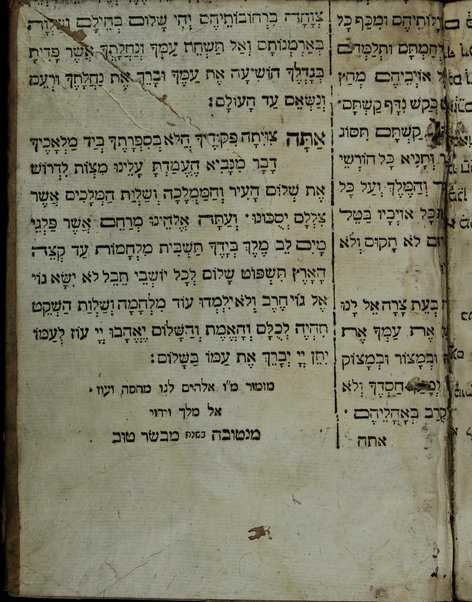 ומכף כל
ותלמדם
אויביהם מחץ
כקש נדף קשתם
קשתם תסוג
וחניא כל חורשי
והמלך ועל כל
אויביו בטל
לא תקום ולא
בעת צרה אל לנו
את עמך את
ובמצור ובמצוק
חסדך ולא
יקרב באהליהם ·
אתה
צוחה ברחובותיהם ויהי שלום בחילם ושלוה
בארמנותם ואל תשחת עמך ונחלתך אשר פדית
בגדלך הושיעה את עמך וברך את נחלתך ורעם
ונשאם עד העולם :
אתה צויתה פקודיך הלא בספרתך ביד מלאכיך
דבר מנביא העמדת עלינו מצות לדרוש
את שלום העיר והממלכה ושלות המלכים אשר
בצללם יסכונו · ועתה אלהינו מרחם אשר פלגי
מים לב מלך בידך תשבית מלחמות עד קצה
הארץ תשפוט שלום לכל יושבי תבל לא ישא גוי
אל גוי חרב ולא ילמדו עוד מלחמה ושלות השקט
תהיה לכלם והאמת והשלום יאהבו יי עוז לעמו
יתן יי יברך את עמו בשלום :
מזמור מ״ו אלהים לנו מחסה ועוז ·
אל מלך וידוי
מנטובה בשנת מבשר טוב